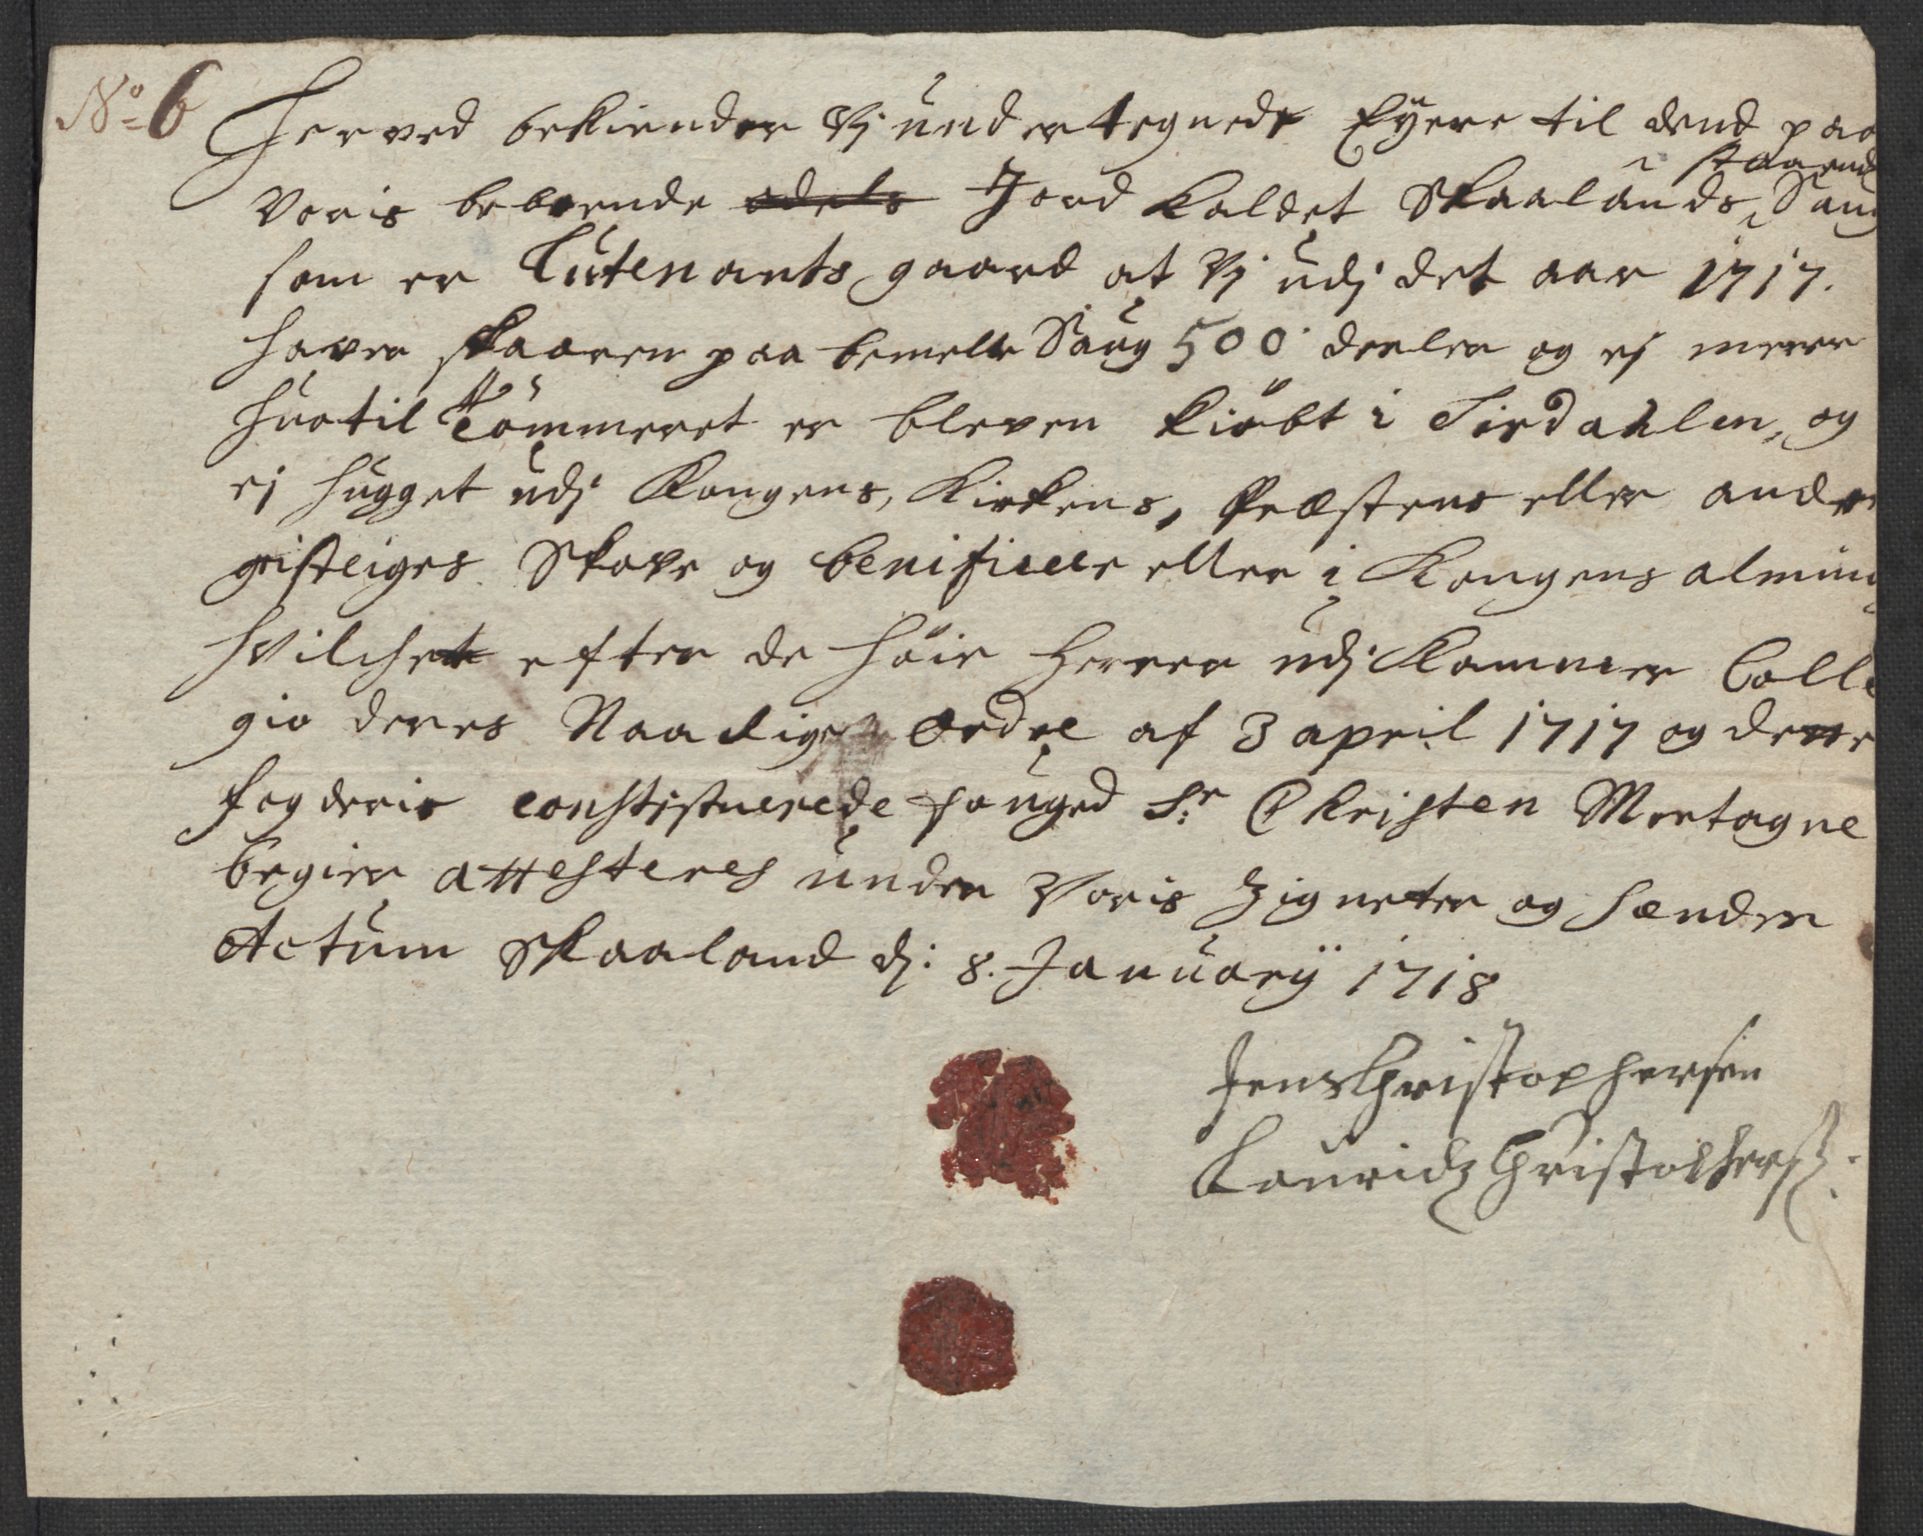 No 6
Herved bekiender Vj undertegnede Eÿere til dend paa
Voris beboende odels Jord kaldet Skaalands staaende Saug
som er Lutenants gaard at Vj udj det aar 1717.
haver skaaren paa bemelte Saug 500 deeler og ej meere
huortil Tömmeret er bleven kiöbt i Sirdahlen, og
ej hugget udj Kongens, Kirkens, Præstens eller andre
gistliges Skove og benificeere eller i Kongens alming
hvilchet efter de höie Herrer udj Kammer Colle
gio deres Naadige Ordre af 3 april 1717 og dette
fogderis constistuerede fouged Sr Christen Mortagne
begier attesteres under Voris Zigneter og hænder
Actum Skaaland dj: 8. Januarÿ 1718
Jens Christophersen
Lauridz Christophers: